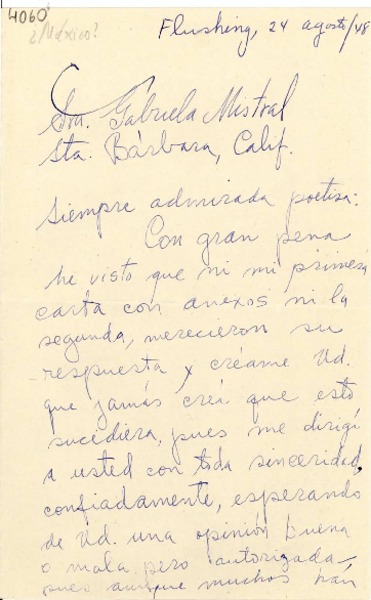 4060
¿México?
Flushing, 24 agosto/48
Sra. Gabriela Mistral
Sta. Bárbara, Calif.
Siempre admirada poetisa:
Con gran pena
he visto que ni mi primera
carta con anexos ni la
segunda, merecieron su
respuesta y créame Ud.
que jamás creí que esto
sucediera, pues me dirigí
a usted con toda sinceridad,
confiadamente, esperando
de Ud. una opinión buena
o mala pero autorizada—
pues aunque muchos han